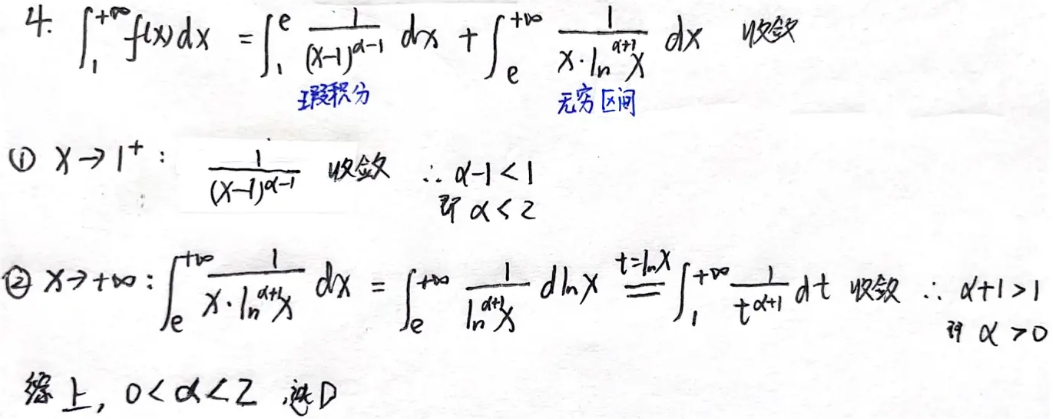 4. ∫₁^{+∞} f(x)dx = ∫₁^e 1/(x-1)^{α-1} dx + ∫_e^{+∞} 1/(x·ln^{α+1}x) dx 收敛
瑕积分 无穷区间
① x→1⁺: 1/(x-1)^{α-1} 收敛 ∴ α-1<1
即 α<2
② x→+∞: ∫_e^{+∞} 1/(x·ln^{α+1}x) dx = ∫_e^{+∞} 1/(ln^{α+1}x) dlnx =^{t=lnx} ∫₁^{+∞} 1/t^{α+1} dt 收敛 ∴ α+1>1
即 α>0
综上, 0<α<2 选D